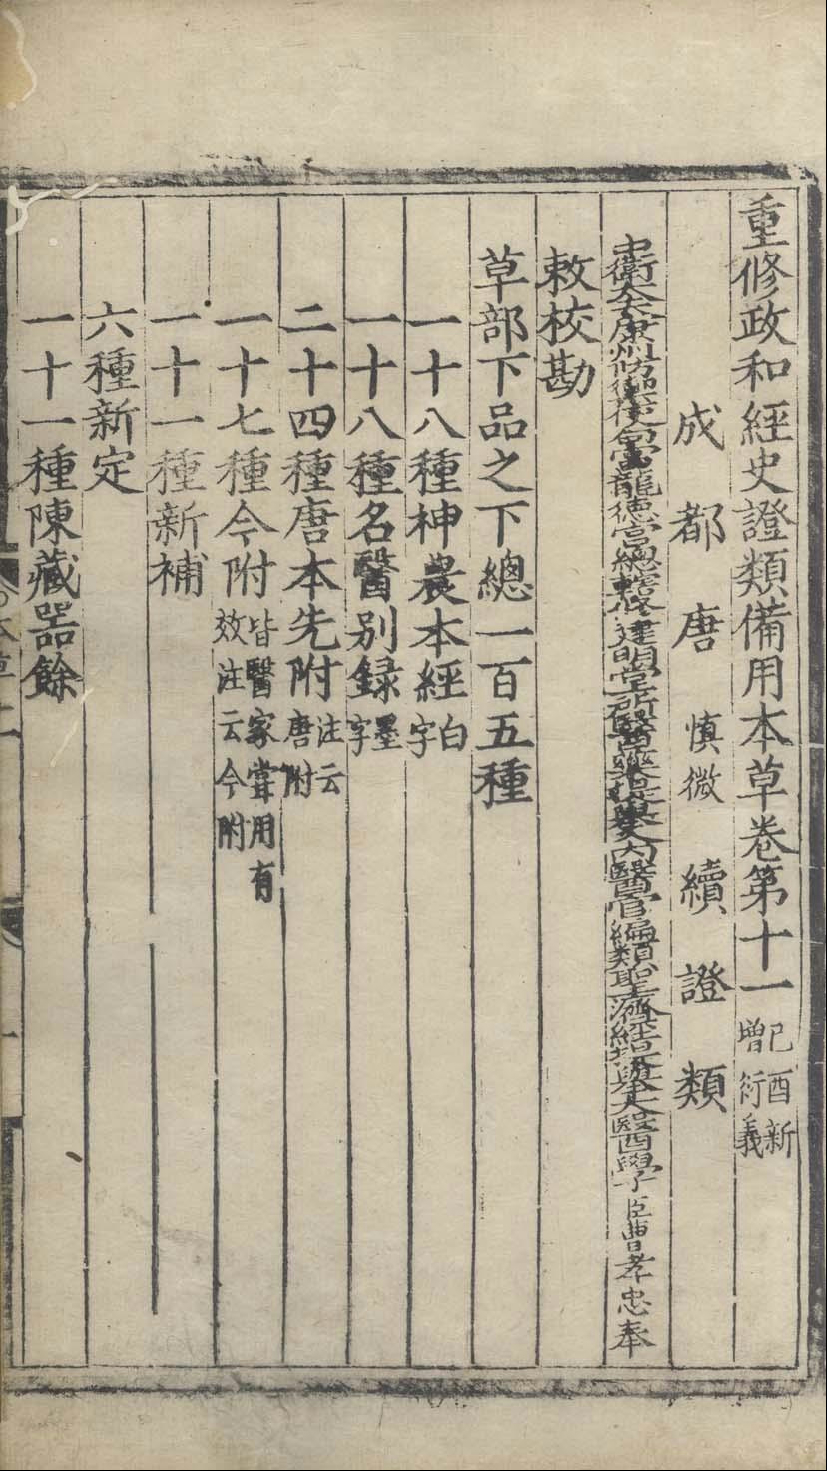 重修政和經史證類備用本草卷第十一己酉新增衍義
成都唐慎微續證類
中衛大夫康州防禦使句當龍德宮總轄修建明堂所醫藥提舉入內醫官編類聖濟經提舉太醫學臣曹孝忠奉
敕校勘
草部下品之下總一百五種
一十八種神農本經白字
一十八種名醫别録墨字
二十四種唐本先附注云唐附
一十七種今附皆醫家嘗用有效注云今附
一十一種新補
六種新定
一十一種陳藏器餘